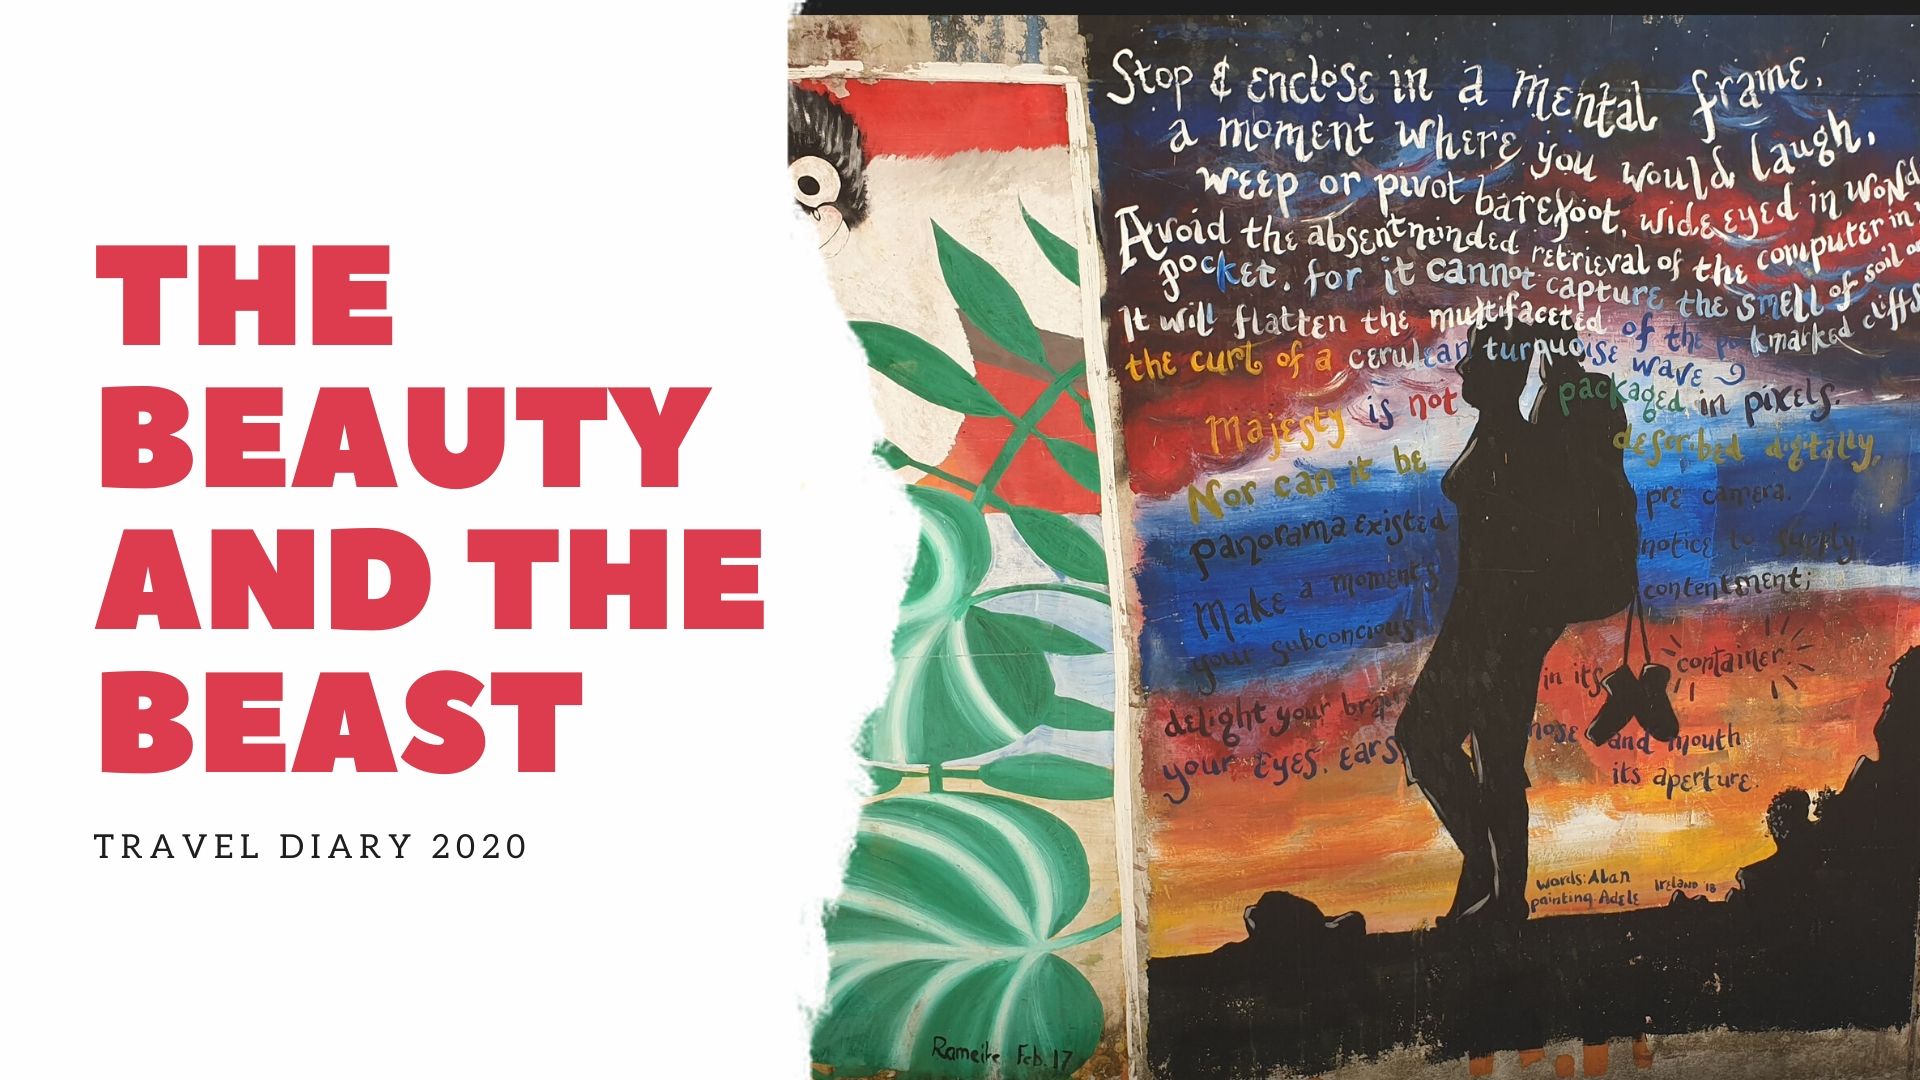 THE
BEAUTY
AND THE
BEAST
TRAVEL DIARY 2020
Stop & enclose in a mental frame,
a moment where you would laugh,
weep or pivot barefoot, wide eyed in
Avoid the absentminded retrieval of the computer in
pocket, for it cannot capture the smell of soil
It will flatten the multifaceted of the kmarked cliffs
the curl of a cerulean turquoise wave
Majesty is not packaged in pixels.
Nor can it be described digitally,
panorama existed pre camera.
Make a moments notice to supply
your subconcious contentment;
in its container.
delight your
your Eyes, ears, nose and mouth
its aperture.
words: Alan
painting: Adele
Ireland 18
Feb. 17